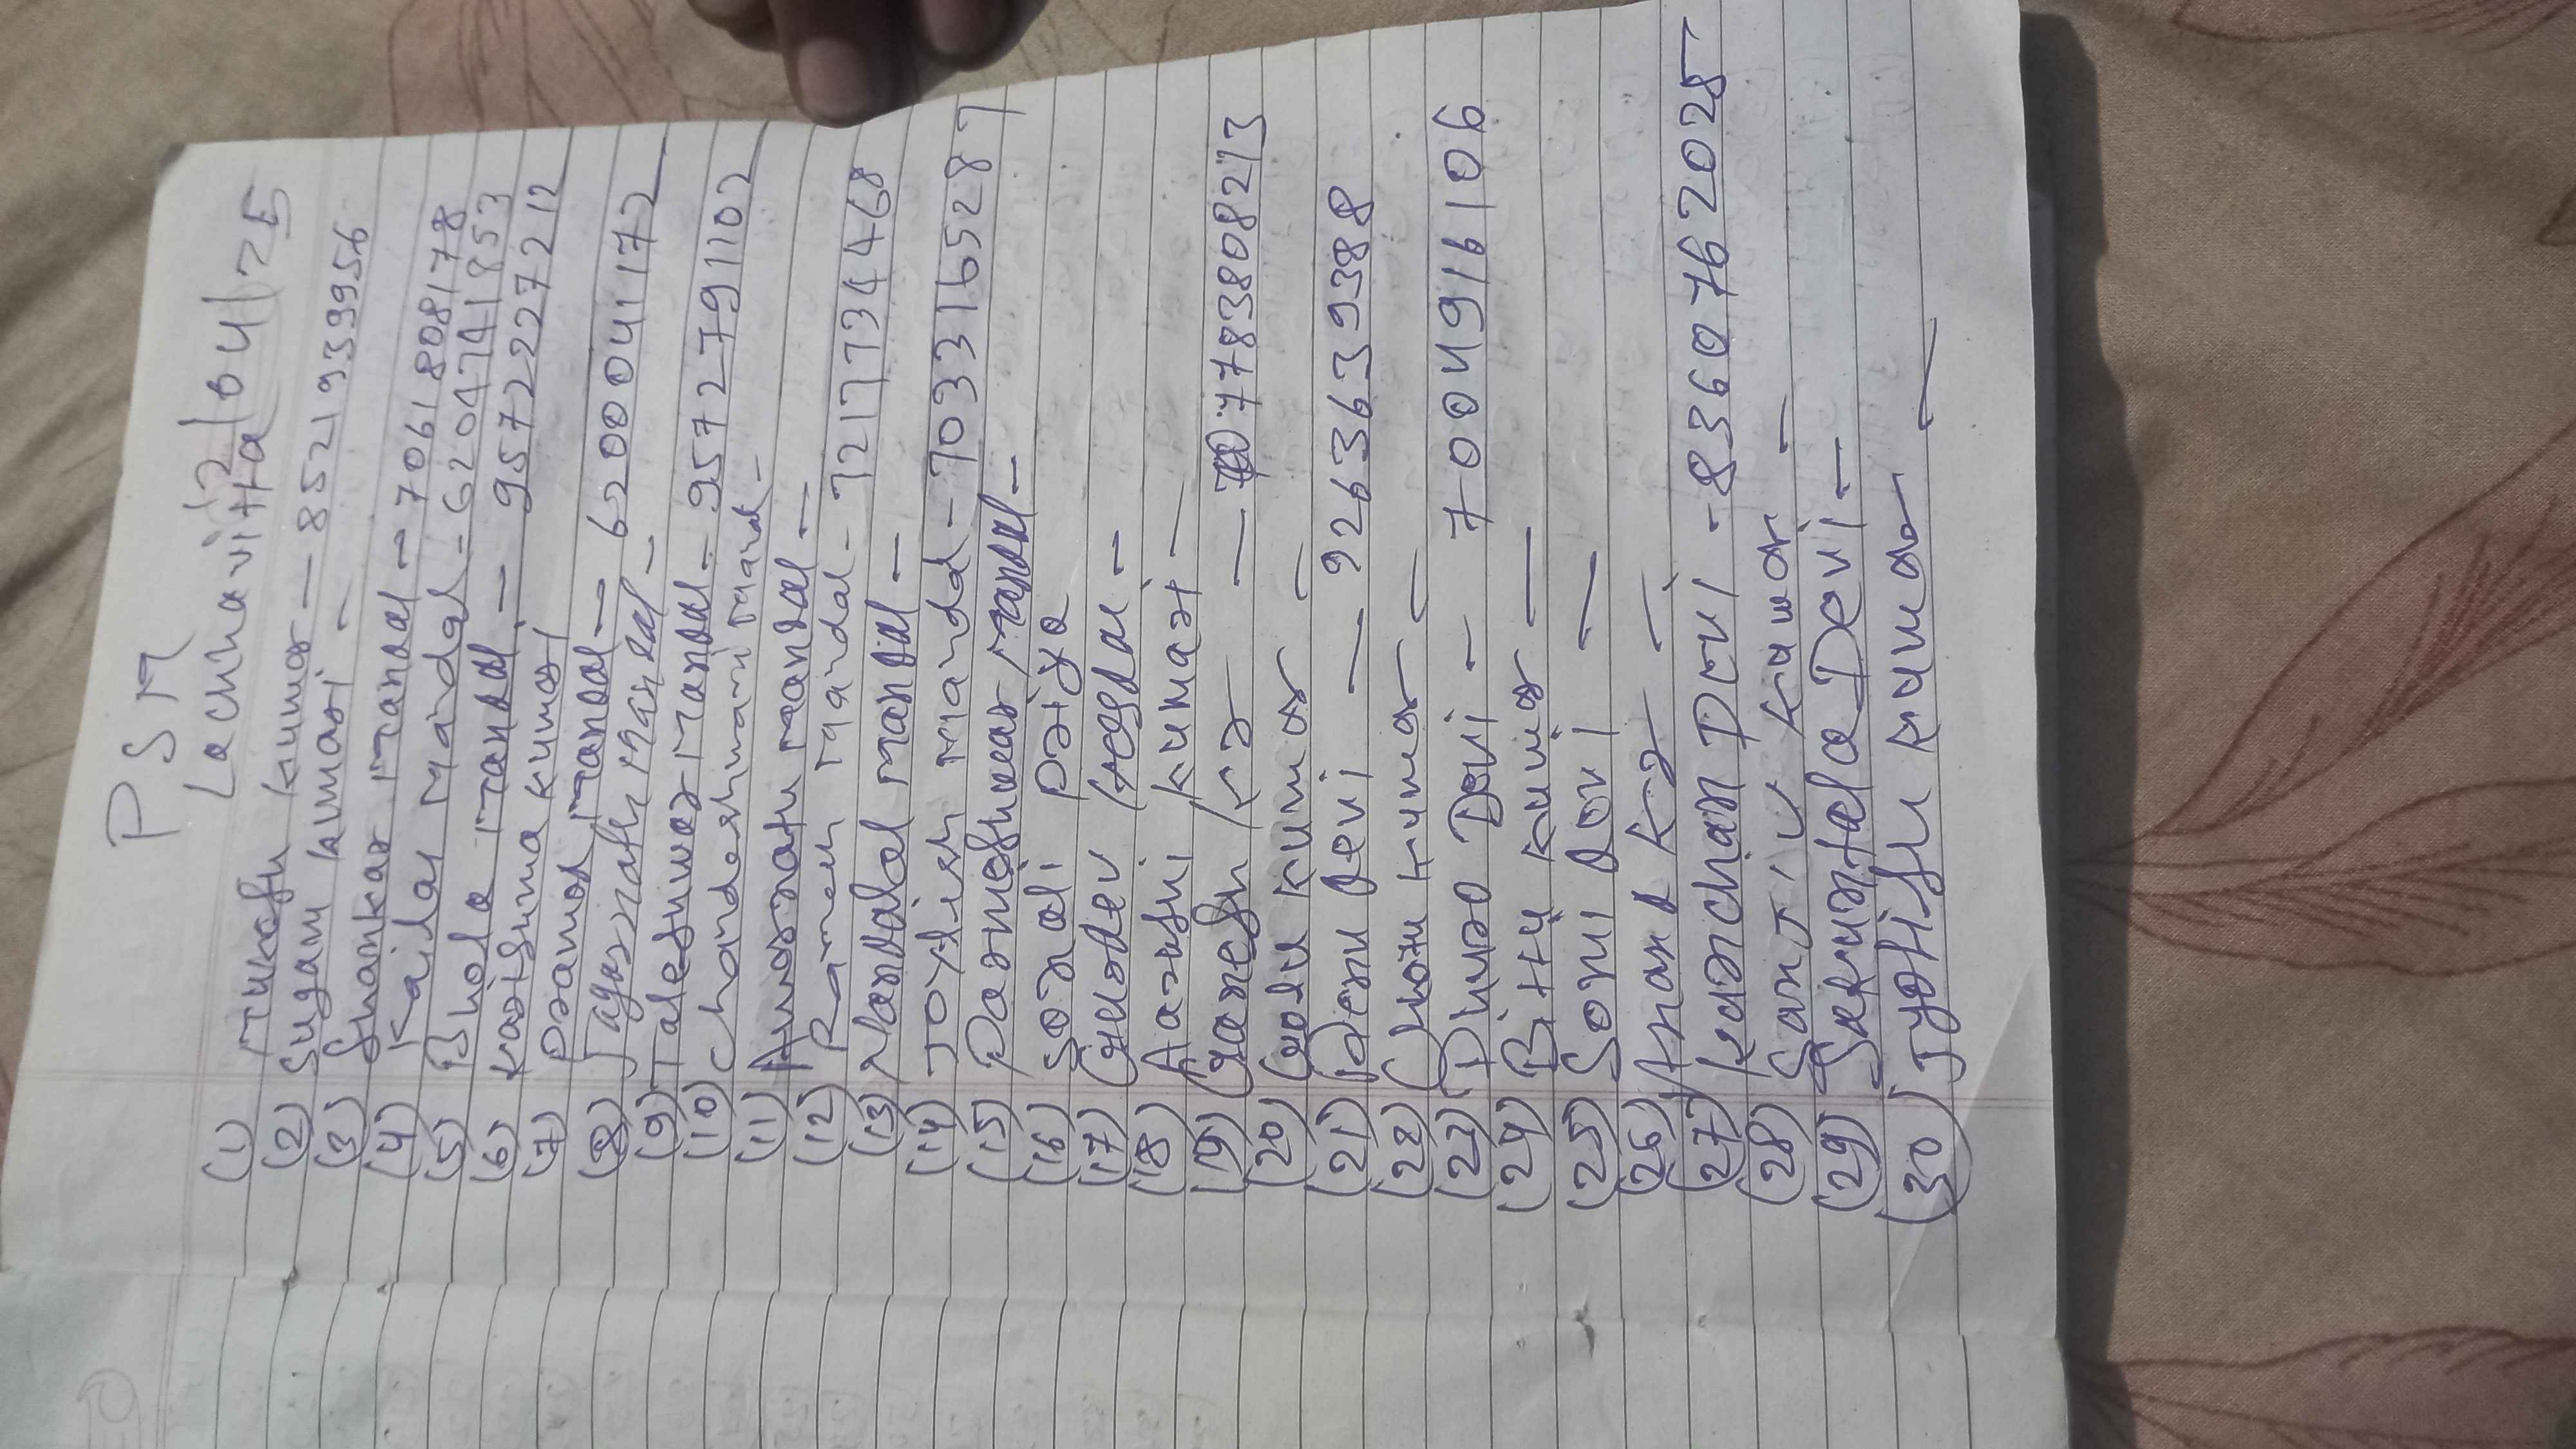 PSM
Lachhavitta 12/04/25
(1) Mukesh kumar - 8521939956
(2) Sugam kumari -
(3) Shankar Mandal - 7061808178
(4) Kailas Mandal - 6204741853
(5) Bhola Mandal - 9572227212
(6) Karishma kumari
(7) Pramod Mandal - 6200041172
(8) Jagarnath Mandal -
(9) Taleshwar Mandal - 9572791102
(10) Chandeshwari Mandal -
(11) Amarnath Mandal -
(12) Ramesh Mandal - 7217734468
(13) Nandalal Mandal -
(14) Joylesh Mandal - 7033165287
(15) Parmeshwar Mandal -
(16) Sonali Priya
(17) Gurudev
(18) Aarushi kumari -
(19) Ganesh Kr - 7783808213
(20) Golu kumar -
(21) Devi - 9263639388
(22) Chhotu kumar -
(23) Devi - 7004916106
(24) Bittu kumar -
(25) Soni Devi -
(26) Anand Kr -
(27) Kanchan Devi - 8360762025
(28) Sanjiv Kumar -
(29) Sakuntala Devi -
(30) Jyotish kumar -